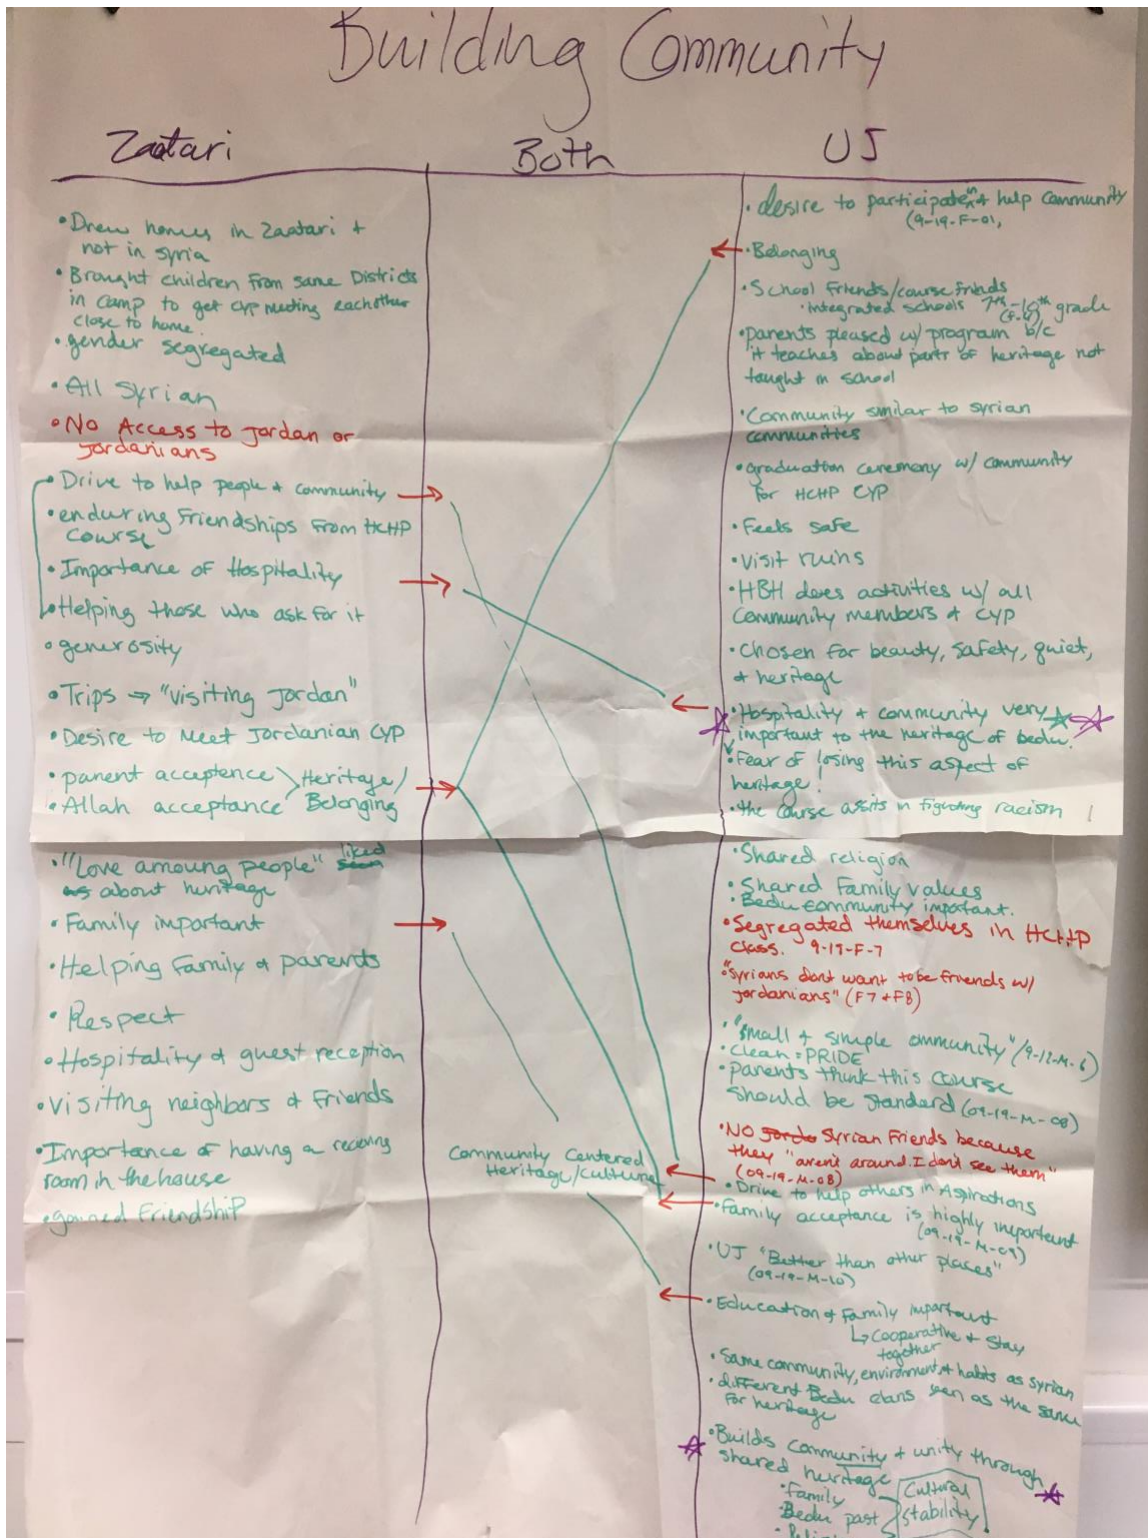 Building Community
Zaatari
Both
UJ
• Drew homes in Zaatari +
not in Syria
• Brought children from same Districts
in camp to get CYP meeting eachother
close to home.
• gender segregated
• All Syrian
• No Access to Jordan or
Jordanians
• Drive to help people + community
• enduring Friendships From HCHP
course
• Importance of Hospitality
• Helping those who ask for it
• generosity
• Trips → "visiting Jordan"
• Desire to Meet Jordanian CYP
• parent acceptence \ Heritage/
• Allah acceptance / Belonging
• "Love amoung people" liked
about heritage
• Family important
• Helping Family & parents
• Respect
• Hospitality & guest reception
• Visiting neighbors & Friends
• Importance of having a receiving
room in the house
• gained Friendship
Community Centered
Heritage/culture
• desire to participate in + help community
(9-19-F-01,
• Belonging
• School Friends/course frinds
• integrated schools 7th-10th grade
• parents pleased w/ program b/c
it teaches about parts of heritage not
taught in school
• Community similar to syrian
communities
• graduation ceremony w/ community
for HCHP CYP
• Feels safe
• Visit ruins
• HBH does activities w/ all
community members & CYP
• Chosen for beauty, safety, quiet,
+ heritage
• Hospitality + community very
important to the heritage of bedu.
• Fear of losing this aspect of
heritage!
• the course assits in fighting racism
• Shared religion
• Shared Family values
• Bedu community important.
• Segregated themselves in HCHP
class. 9-19-F-7
• "Syrians dont want to be friends w/
Jordanians" (F7 + F8)
• "Small + simple ommunity" (9-12-M-6)
• Clean = PRIDE
• parents think this course
should be standard (09-19-M-08)
• NO Syrian Friends because
they "aren't around. I don't see them"
(09-19-M-08)
• Drive to help others in Aspirations
• Family acceptance is highly important
(09-19-M-09)
• UJ "Better than other places"
(09-19-M-10)
• Education & Family important
↳ cooperative + stay
together
• Same community, environment, + habits as Syrian
• different Bedu clans seen as the same
for heritage
• Builds community + unity through
shared heritage
• Family
• Bedu past
Cultural
stability